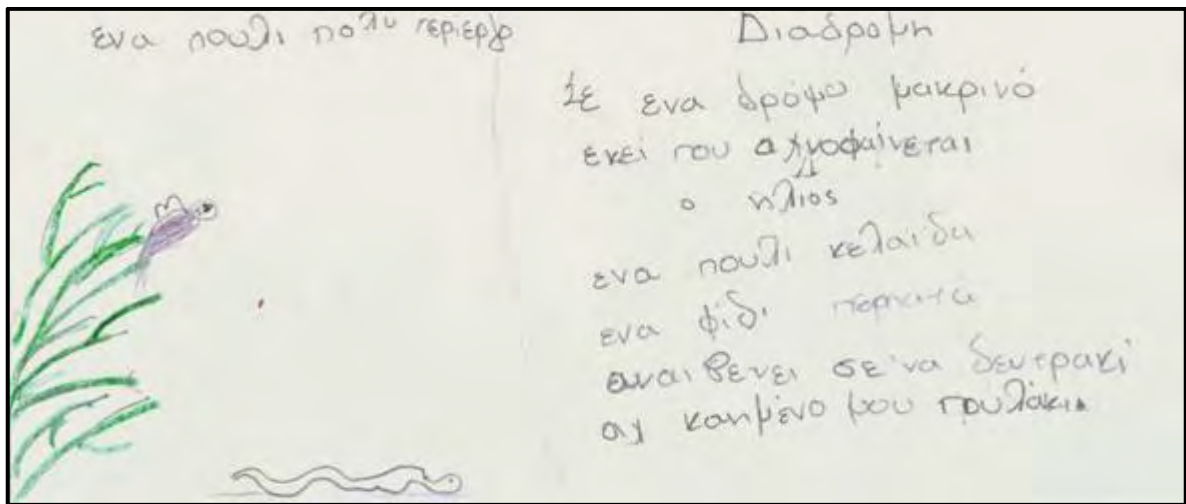 ενα πουλι πολυ περιεργο
Διαδρομη
Σε ενα δρόμο μακρινό
εκεί που αχνοφαίνεται
ο ηλιος
ενα πουλι κελαιδα
ενα φίδι περπατα
αναιβενει σε'να δεντρακι
αχ καημένο μου πουλάκι.